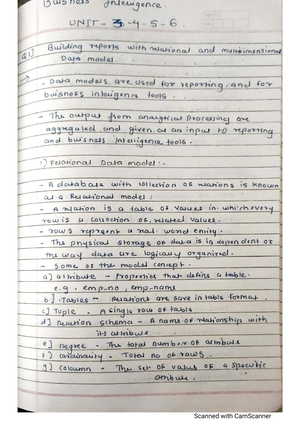 Business Intelligence.
UNIT - 3-4-5-6.
Q1] Building reports with relational and multidimensional
Data model.
- Data models are used for reporting and for
buisness inteligence tools.
- The output from analytical processing are
aggregated and given as an input to reporting
and business intelligence tools.
1) Relational Data model :-
- A database with collection of relations is known
as a Relational model:
- A relation is a table of values in which every
row is a collection of related values.
- rows represent a real world entity.
- The physical storage of data is independent of
the way data are logically organized.
Some of the model concept.
a) attribute - Properties that define a table.
e.g. emp-no, emp-name
b] Tables - Relations are save in table format.
c] Tuple - A single row of table
d] Relation schema - A name of relationship with
its attribute.
e] Degree - The total number of attribute
f) Cardinality - Total no of rows.
g) Column - The set of value of a specific
attribute.
Scanned with CamScanner